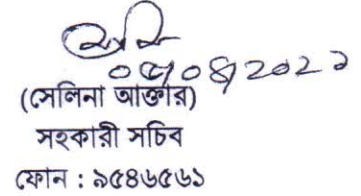 ০৫/০৪/২০২১
(সেলিনা আক্তার)
সহকারী সচিব
ফোন : ৯৫৪৬৫৬১